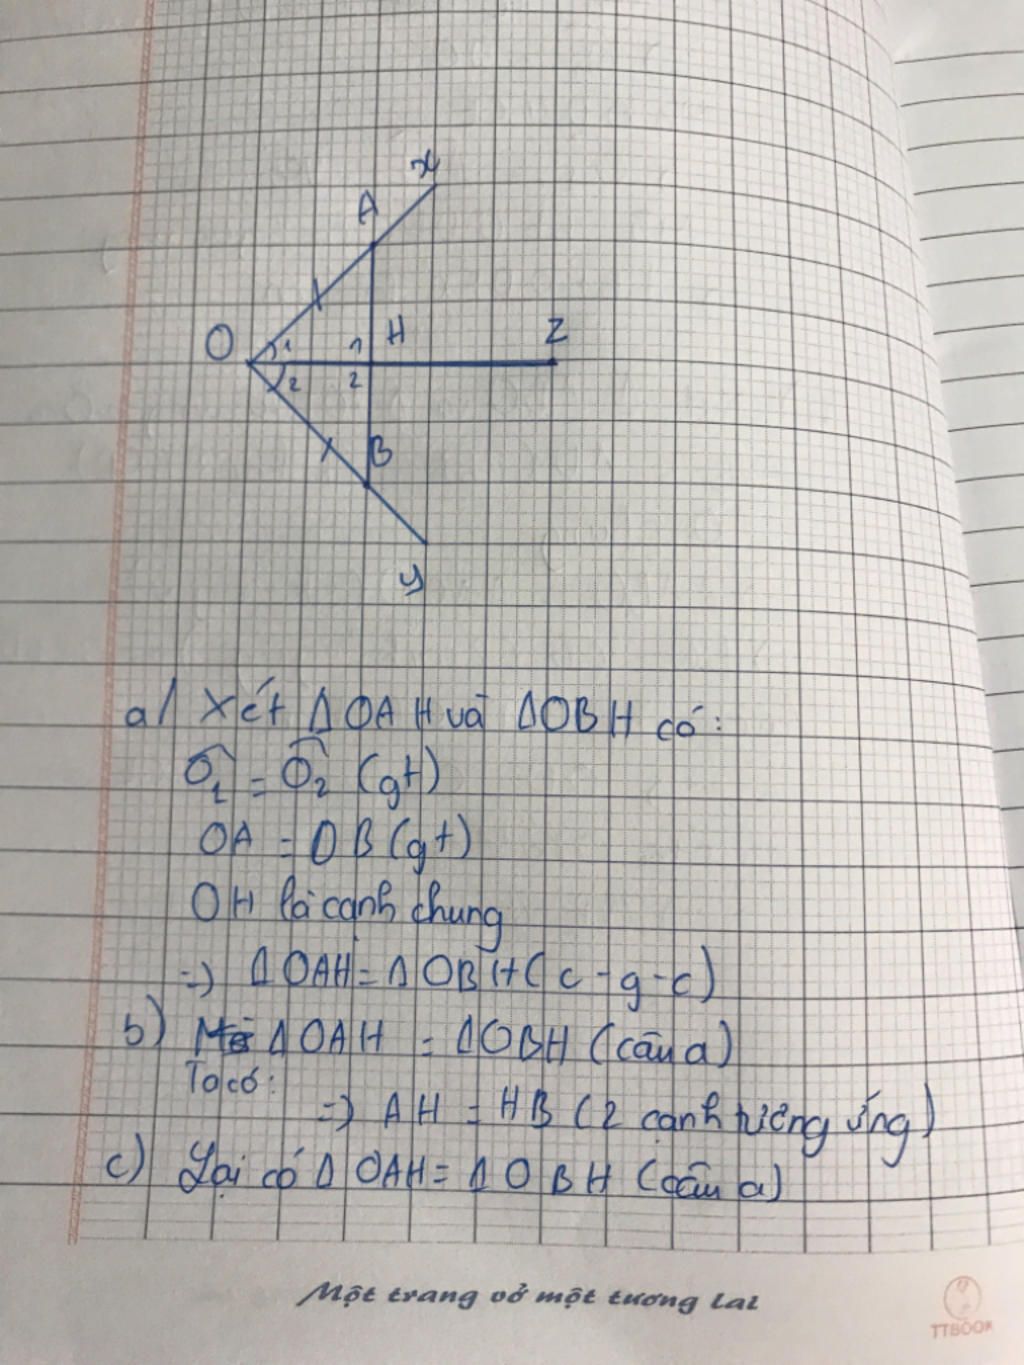 x
A
O 1 1 H Z
2 2
B
y
a/ Xét Δ OAH và ΔOBH có:
Ô₁ = Ô₂ (gt)
OA = OB (gt)
OH là cạnh chung
=> Δ OAH = Δ OBH (c-g-c)
b) ΔOAH = ΔOBH (câu a)
Ta có:
=> AH = HB (2 cạnh tương ứng)
c) Lại có Δ OAH = Δ OBH (câu a)
Một trang vở một tương lai
TTBOOK